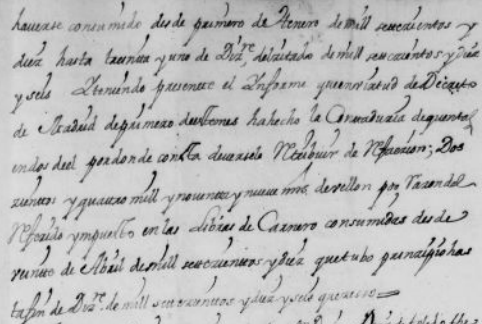 haverse consumido desde primero de Henero de mill settecientos y
diez hasta treinta y uno de Diz.re del citado de mill settecientos y diez
y seis Y teniendo presente el Ynforme que en virtud de Decreto
de Madrid de primero deeste mes ha hecho la Contaduria de quental
endos de el por donde consta deverselo Retribuir de Refaczion; Dos
zientos y quatro mill y noventa y nueve mrs. de vellon por razon de lo
Referido ympuesto en las Libras de Carnero consumidas desde
veinte de Abril de mill settecientos y diez que tubo prinzipio has
ta fin de Diz.re de mill settecientos y diez y seis que